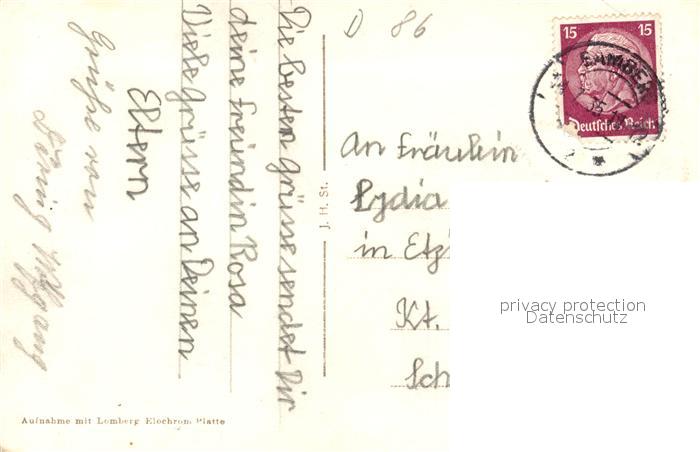 D 86
Die besten Grüsse sendet Dir
deine Freundin Rosa
Viele Grüsse an Deinen
Eltern
Grüße von
Wolfgang
J. H. St.
15 15
Deutsches Reich
An Fräulein
Lydia
in Etz
Kt.
Sch
privacy protection
Datenschutz
Aufnahme mit Lomberg Elochrom Platte